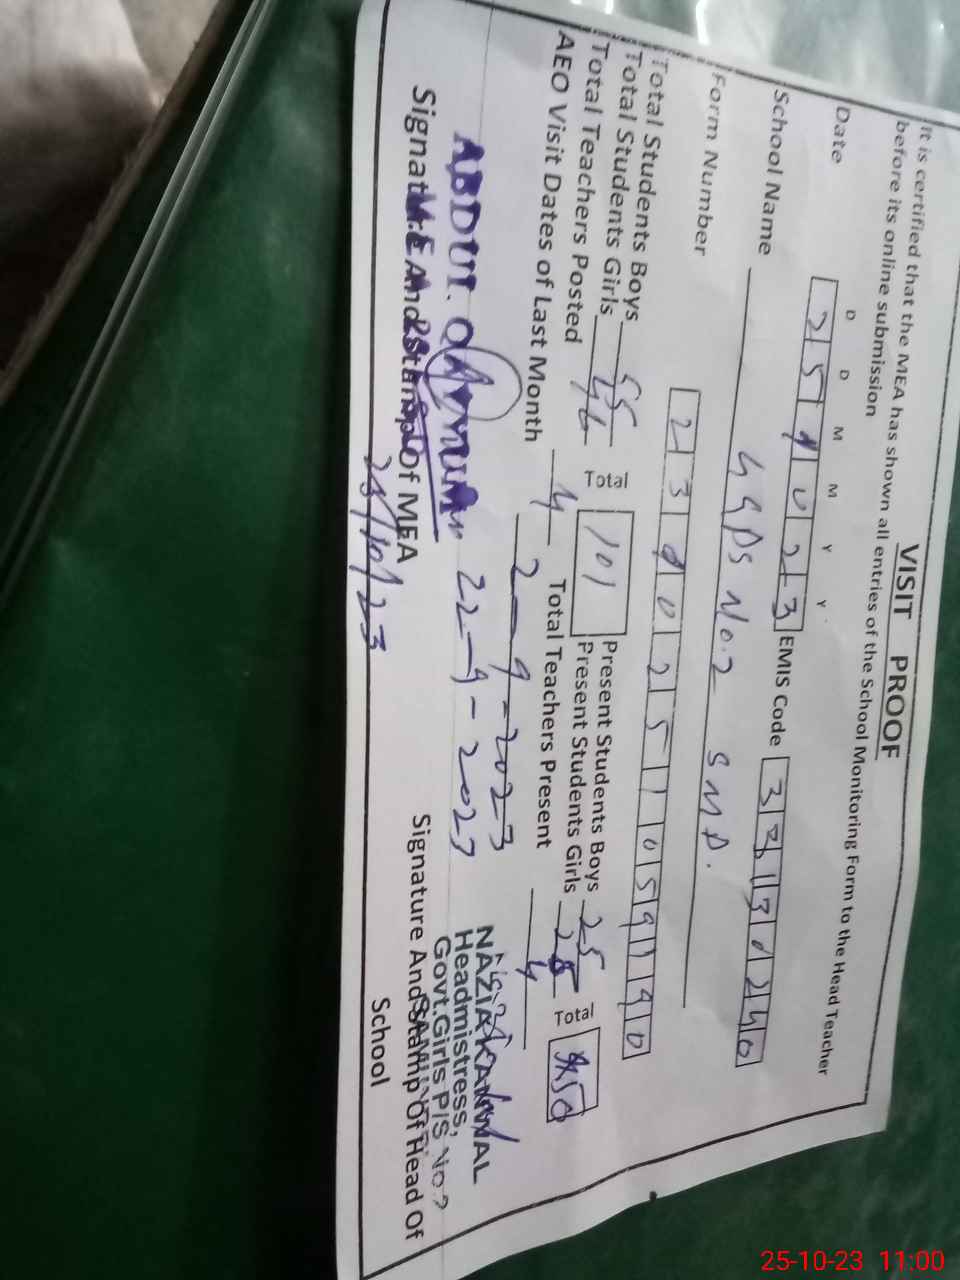 VISIT PROOF
It is certified that the MEA has shown all entries of the School Monitoring Form to the Head Teacher
before its online submission
D D M M Y Y
Date 25 10 23 EMIS Code 33130240
School Name GGPS No.2 SMD.
Form Number 231025110591190
Total Students Boys 55 Total 101 Present Students Boys 25 Total 50
Total Students Girls 46 Present Students Girls 25
Total Teachers Posted 4 Total Teachers Present 4
AEO Visit Dates of Last Month 2-9-2023
22-9-2023
ABDUL QAYYUM
Signature And Stamp Of MEA
25/10/23
NAZIA KANWAL
Headmistress,
Govt.Girls P/S No.2
Signature And Stamp Of Head Of
School
25-10-23 11:00